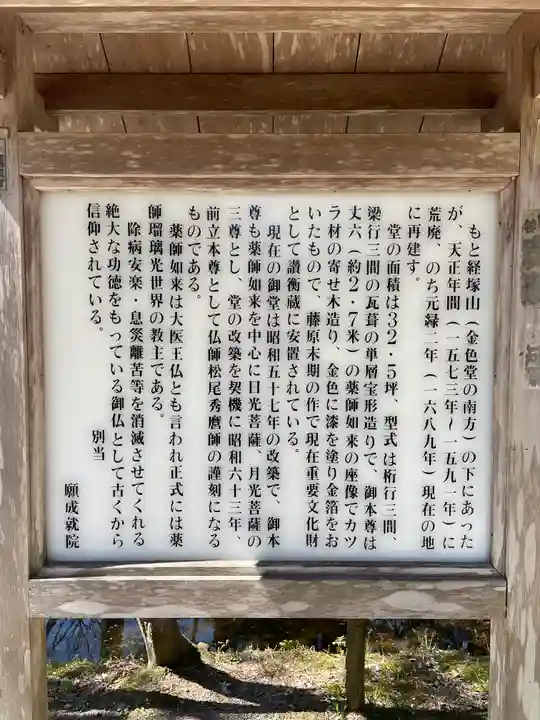 もと経塚山(金色堂の南方)の下にあった
が、天正年間(一五七三年〜一五九一年)に
荒廃、のち元緑二年(一六八九年)現在の地
に再建す。
堂の面積は32・5坪、型式は桁行三間、
梁行三間の瓦葺の単層宝形造りで、御本尊は
丈六(約2・7米)の薬師如来の座像でカツ
ラ材の寄せ木造り、金色に漆を塗り金箔をお
いたもので、藤原末期の作で現在重要文化財
として讃衡蔵に安置されている。
現在の御堂は昭和五十七年の改築で、御本
尊も薬師如来を中心に日光菩薩、月光菩薩の
三尊とし、堂の改築を契機に昭和六十三年、
前立本尊として仏師松尾秀麿師の謹刻になる
ものである。
薬師如来は大医王仏とも言われ正式には薬
師瑠璃光世界の教主である。
除病安楽・息災離苦等を消滅させてくれる
絶大な功徳をもっている御仏として古くから
信仰されている。
別当
願成就院